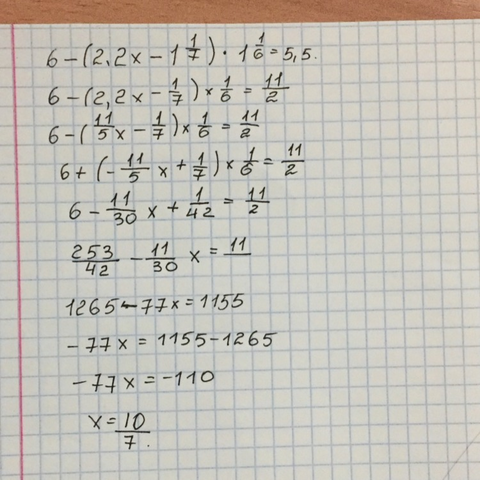 6 - (2,2x - 1 1/7) · 1 1/6 = 5,5.
6 - (2,2x - 1/7) × 1/6 = 11/2
6 - (11/5 x - 1/7) × 1/6 = 11/2
6 + (- 11/5 x + 1/7) × 1/6 = 11/2
6 - 11/30 x + 1/42 = 11/2
253/42 - 11/30 x = 11/
1265 - 77x = 1155
- 77x = 1155 - 1265
- 77x = -110
x = 10/7.